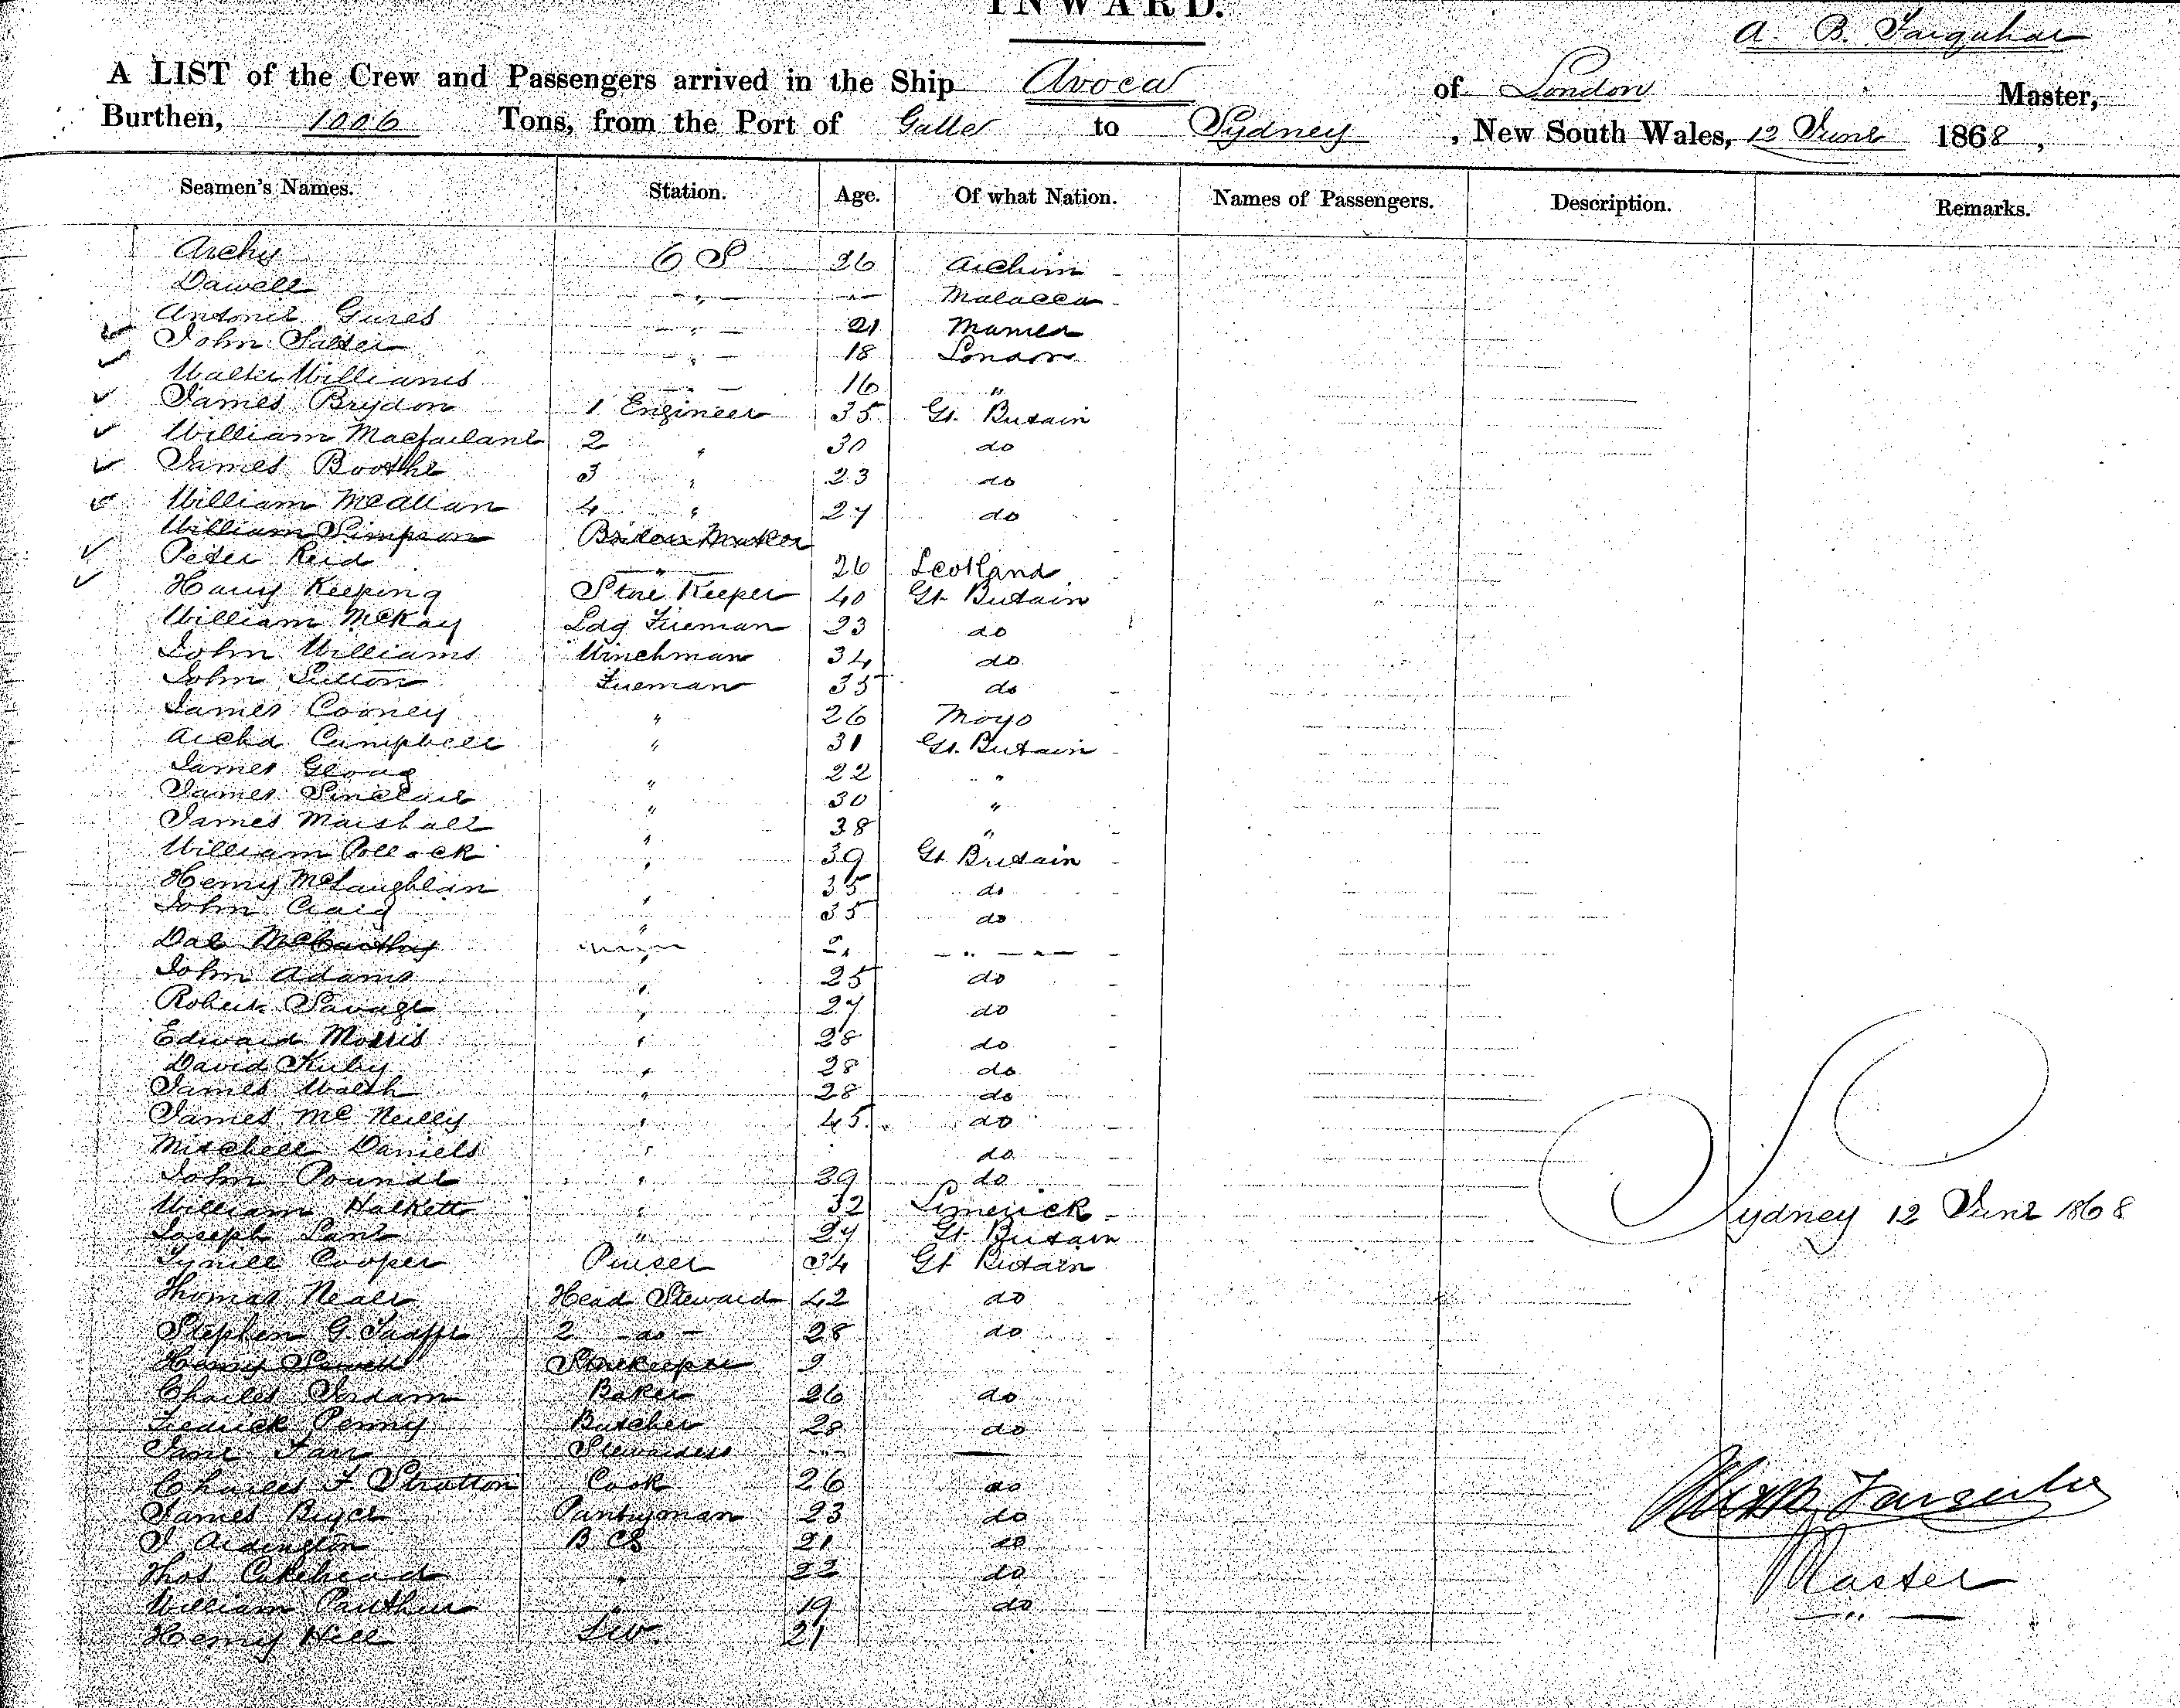 INWARD.
A. B. Farquhar
A LIST of the Crew and Passengers arrived in the Ship Avoca of London Master,
Burthen, 1006 Tons, from the Port of Galle to Sydney, New South Wales, 12 June 1868,
Seamen's Names. Station. Age. Of what Nation. Names of Passengers. Description. Remarks.
Archy 26
Malacca
21
John 18 London
Walter Williams 16 "
James Brydon 1 Engineer 35 Gt. Britain
William Macfarlane 2 " 30 do
James Boothe 3 " 23 do
William McAllan 4 " 27 do
William Simpson Boiler Maker
Peter Reid " 26 Scotland
Harry Keeping Store Keeper 40 Gt. Britain
William McKay Ldg Fireman 23 do
John Williams Winchman 34 do
John Sutton Fireman 35 do
James Cooney " 26 Moyo
Archd Campbell " 31 Gt. Britain
James " 22 "
James Sinclair " 30 "
James Marshall " 38 "
William Pollock " 39 Gt. Britain
Henry McLaughlan " 35 do
John Craig " 35 do
McCarthy
John Adams " 25 do
Robert Savage " 27 do
Edward Morris " 28 do
David Kirby " 28 do
James Walsh " 28 do
James McNeilly " 45 do
Mitchell Daniels " do
John " 39 do
William Halkett " 32 Limerick
Joseph " 27 Gt. Britain
Cooper Purser 34 Gt Britain
Thomas Neale Head Steward 42 do
Stephen G 2 -do- 28 do
Storekeeper
Charles Baker 26 do
Fredrick Penny Butcher 28 do
Farr Stewardess
Charles F. Stratton Cook 26 do
James Pantryman 23 do
21 do
Thos Cakehead " 22 do
William 19 do
Henry Hill 21
Sydney 12 June 1868
Farquhar
Master